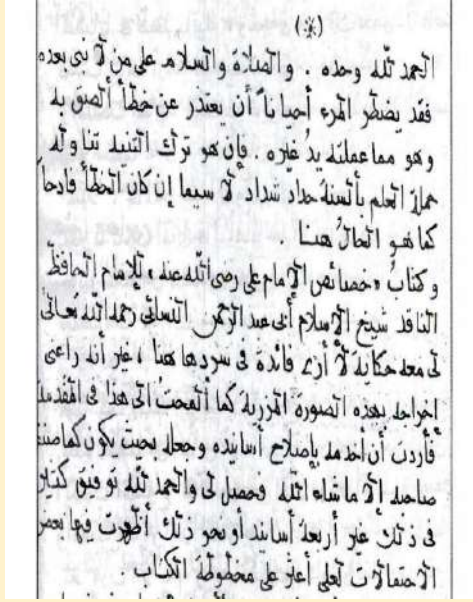 (*)
الحمد لله وحده . والصلاة والسلام على من لا نبى بعده
فقد يضطر المرء أحيانا أن يعتذر عن خطأ ألصق به
وهو مما عملته يد غيره . فإن هو ترك التنبيه تناوله
حملة العلم بألسنة حداد شداد لا سيما إن كان الخطأ فادحا
كما هو الحال هنا .
وكتاب « خصائص الإمام على رضى الله عنه » للإمام الحافظ
الناقد شيخ الإسلام أبى عبد الرحمن النسائى رحمه الله تعالى
لى معه حكاية لا أرى فائدة فى سردها هنا ، غير أنه راعنى
اخراجه بهذه الصورة المزرية كما ألمحت الى هذا فى المقدمة
فأردت أن أخدمه بإصلاح أسانيده وجعله بحيث يكون كما صنفه
صاحبه الا ما شاء الله وحصل لى والحمد لله توفيق كبير
فى ذلك غير أربعة أسانيد أو نحو ذلك أظهرت فيها بعض
الاحتمالات لعلى أعثر على مخطوطة الكتاب